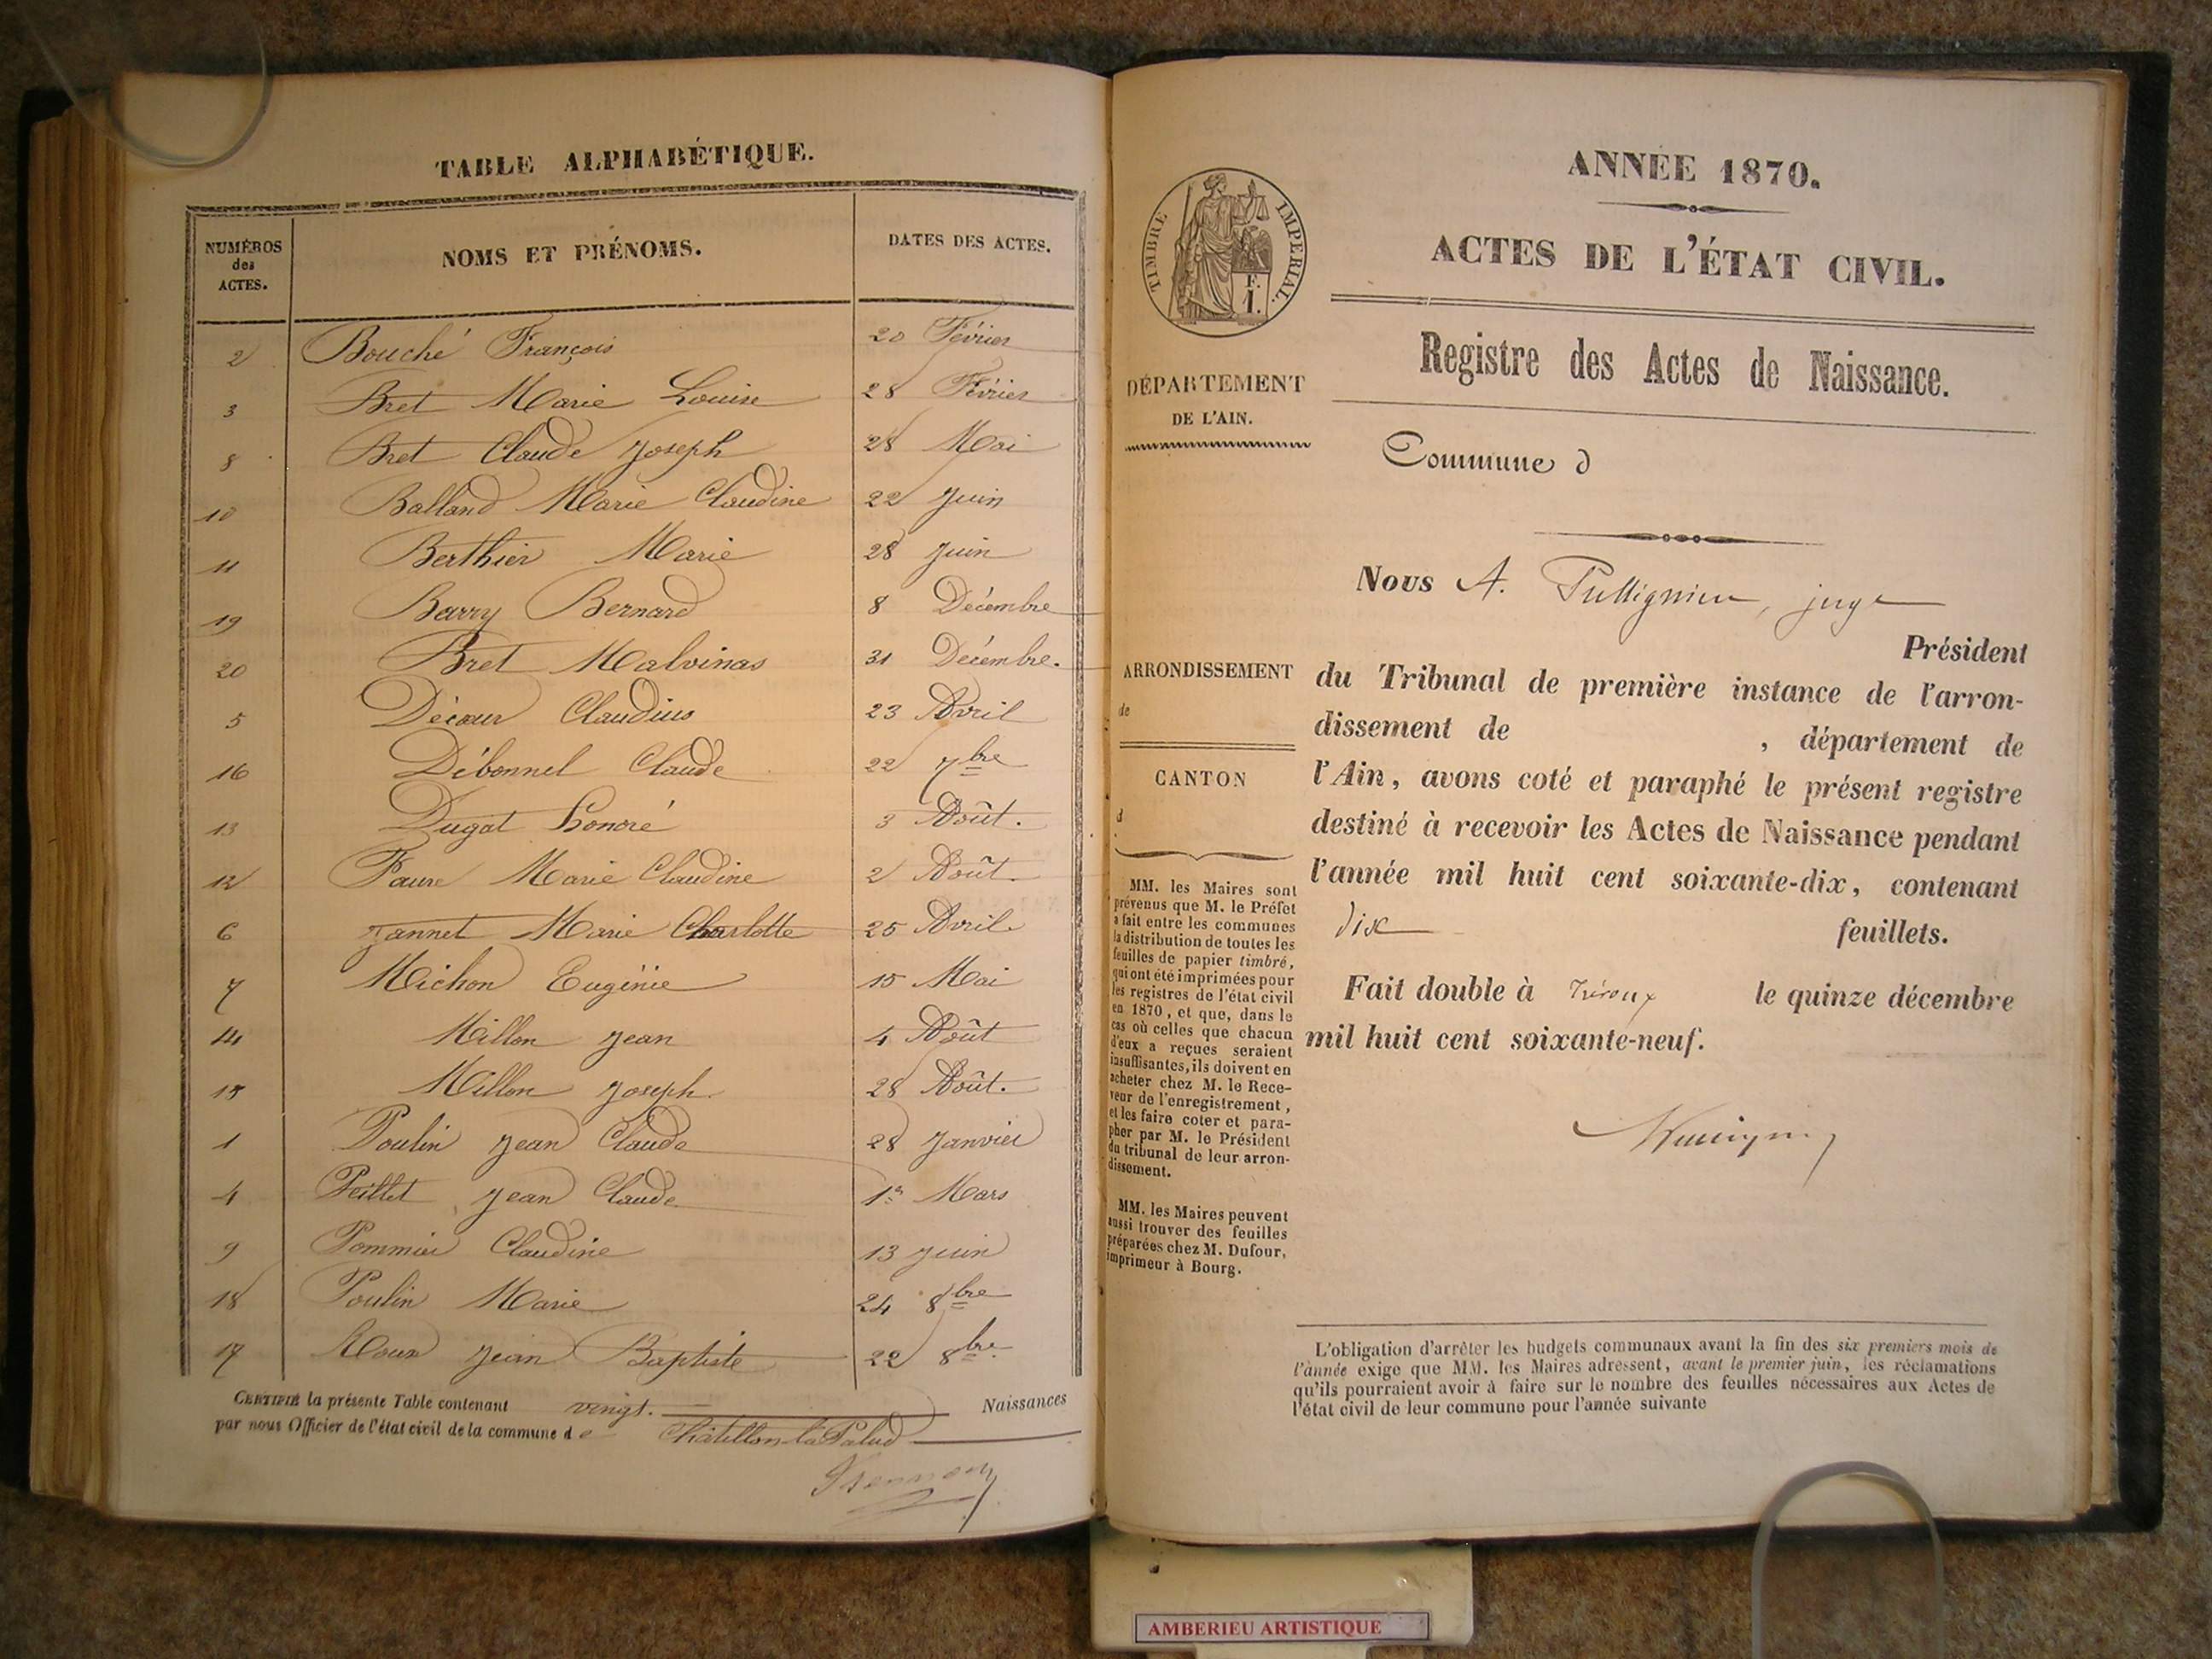 TABLE ALPHABÉTIQUE.
NUMÉROS des ACTES. NOMS ET PRÉNOMS. DATES DES ACTES.
2 Bouché François 20 Février
3 Bret Marie Louise 28 Février
8 Bret Claude Joseph 28 Mai
10 Balland Marie Claudine 22 Juin
11 Berthier Marie 28 Juin
19 Barry Bernard 8 Décembre
20 Bret Malvinas 31 Décembre.
5 Décour Claudius 23 Avril
16 Débonnel Claude 22 7bre
13 Dugat Honoré 3 Août.
12 Faure Marie Claudine 2 Août.
6 Jannet Marie Charlotte 25 Avril.
7 Michon Eugénie 15 Mai
14 Millon Jean 4 Août
15 Millon Joseph 28 Août.
1 Poulin Jean Claude 28 Janvier
4 Peillet Jean Claude 1er Mars
9 Pommier Claudine 13 Juin
18 Poulin Marie 24 8bre
17 Roux Jean Baptiste 22 8bre.
CERTIFIÉ la présente Table contenant vingt. Naissances
par nous Officier de l'état civil de la commune de Châtillon-la-Palud
TIMBRE IMPERIAL.
F.
1.
DÉPARTEMENT
DE L'AIN.
ARRONDISSEMENT
de
CANTON
d
MM. les Maires sont
prévenus que M. le Préfet
a fait entre les communes
la distribution de toutes les
feuilles de papier timbré,
qui ont été imprimées pour
les registres de l'état civil
en 1870, et que, dans le
cas où celles que chacun
d'eux a reçues seraient
insuffisantes, ils doivent en
acheter chez M. le Rece-
veur de l'enregistrement,
et les faire coter et para-
pher par M. le Président
du tribunal de leur arron-
dissement.
MM. les Maires peuvent
aussi trouver des feuilles
préparées chez M. Dufour,
imprimeur à Bourg.
ANNÉE 1870.
ACTES DE L'ÉTAT CIVIL.
Registre des Actes de Naissance.
Commune d
Nous A. , juge
Président
du Tribunal de première instance de l'arron-
dissement de , département de
l'Ain, avons coté et paraphé le présent registre
destiné à recevoir les Actes de Naissance pendant
l'année mil huit cent soixante-dix, contenant
dix feuillets.
Fait double à Trévoux le quinze décembre
mil huit cent soixante-neuf.
L'obligation d'arrêter les budgets communaux avant la fin des six premiers mois de
l'année exige que MM. les Maires adressent, avant le premier juin, les réclamations
qu'ils pourraient avoir à faire sur le nombre des feuilles nécessaires aux Actes de
l'état civil de leur commune pour l'année suivante
AMBERIEU ARTISTIQUE